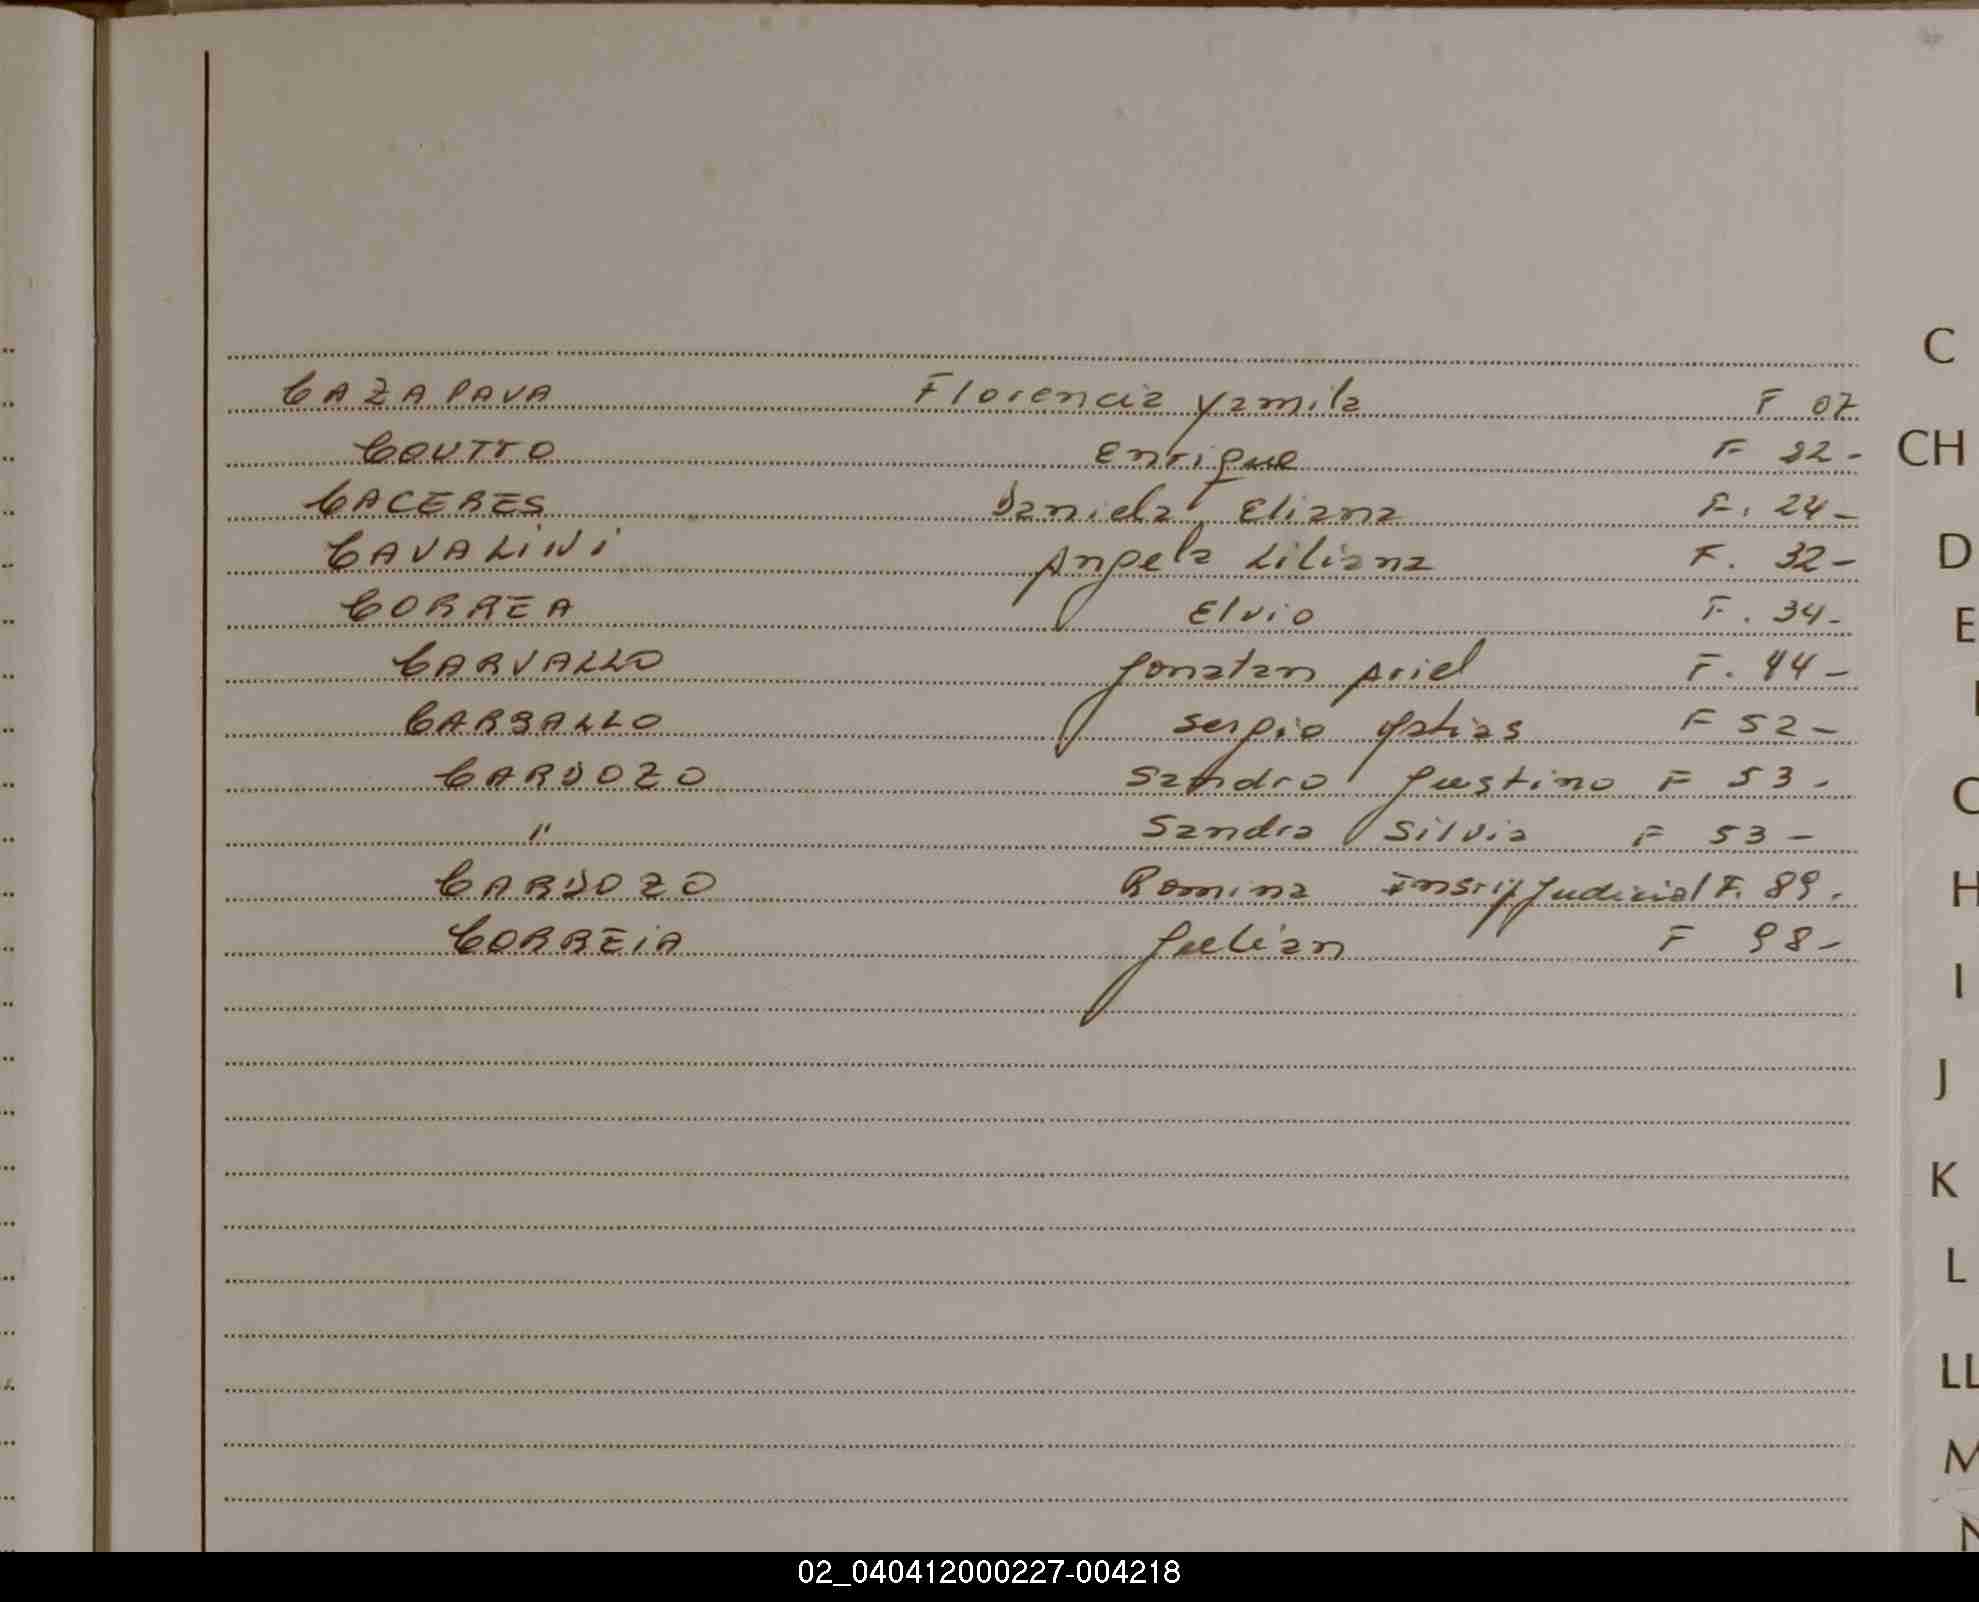 CAZAPAVA Florencia Yamila F 07
COUTTO Enrique F 22-
CACERES Daniela Eliana F. 24-
CAVALINI Angela Liliana F. 32-
CORREA Elvio F. 34-
CARVALLO Jonatan Ariel F. 44-
CARBALLO Sergio Matias F 52-
CARDOZO Sandro Justino F 53-
" Sandra Silvia F 53-
CARDOZO Romina Judicial F. 89.
CORREIA Julian F 98-
C
CH
D
E
H
I
J
K
L
LL
M
N
02_040412000227-004218